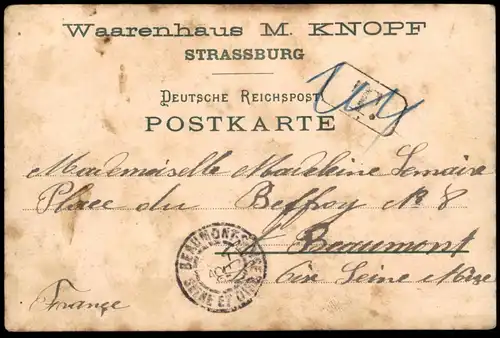 Waarenhaus M. KNOPF
STRASSBURG
DEUTSCHE REICHSPOST
POSTKARTE
Mademoiselle Madeleine Lemaire
Place du Beffroy N 8
Beaumont
Oise Seine
France
BEAUMONT
SEINE ET OISE